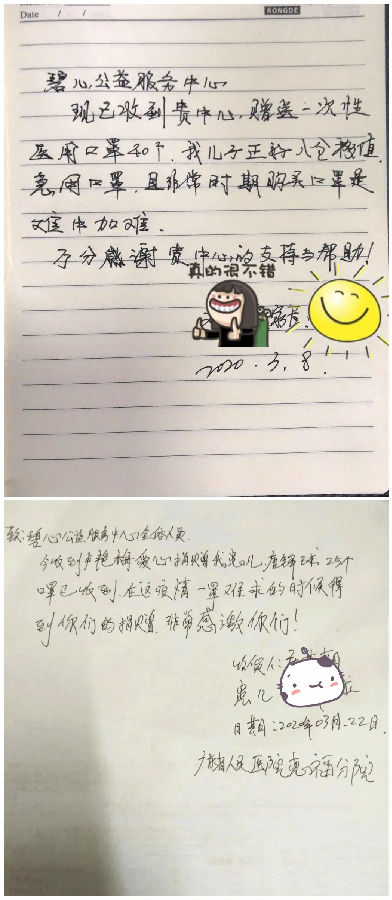 Date / /
RONGDE
碧心公益服务中心
现已收到贵中心赠送一次性
医用口罩30个,我儿子正好入仓移植
急用口罩,且非常时期购买口罩是
难中加难.
十分感谢贵中心的支持与帮助!
真的很不错
2020.3.8.
致:碧心公益服务中心全体人员
今收到 爱心捐赠我患儿 25个
口罩已收到.在这疫情一罩难求的时候得
到你们的捐赠.非常感激你们!
收货人:
患儿
日期:2020年03月22日.
广东省人民医院惠福分院